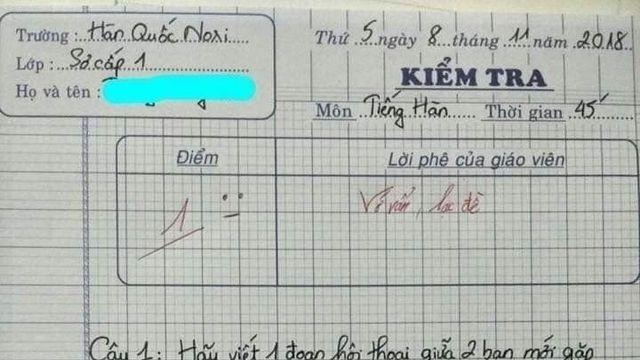 Trường : Hàn Quốc Nori
Lớp : Sơ cấp 1
Họ và tên :
Thứ 5 ngày 8 tháng 11 năm 2018
KIỂM TRA
Môn Tiếng Hàn Thời gian 45'
Điểm
Lời phê của giáo viên
1
Vớ vẩn, lạc đề
Câu 1: Hãy viết 1 đoạn hội thoại giữa 2 bạn mới gặp